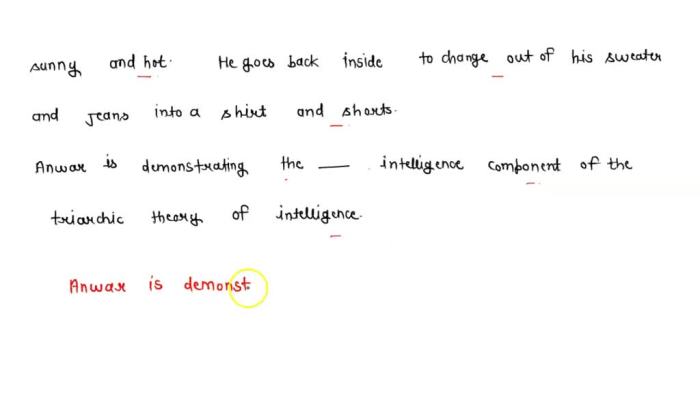 sunny and hot. He goes back inside to change out of his sweater
and jeans into a shirt and shorts.
Anwar is demonstrating the ___ intelligence component of the
triarchic theory of intelligence.
Anwar is demonst